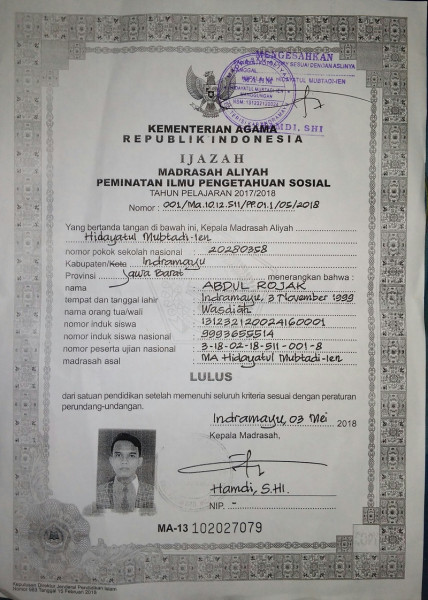 MENGESAHKAN
SESUAI DENGAN ASLINYA
TANGGAL
HIDAYATUL MUBTADI-IEN
HAMDI, SHI
KEMENTERIAN AGAMA
REPUBLIK INDONESIA
IJAZAH
MADRASAH ALIYAH
PEMINATAN ILMU PENGETAHUAN SOSIAL
TAHUN PELAJARAN 2017/2018
Nomor : 001/Ma.10.12.511/PP.01.1/05/2018
Yang bertanda tangan di bawah ini, Kepala Madrasah Aliyah
Hidayatul Mubtadi-ien
nomor pokok sekolah nasional 20280358
Kabupaten/Kota Indramayu
Provinsi Jawa Barat menerangkan bahwa :
nama : ABDUL ROJAK
tempat dan tanggal lahir : Indramayu, 3 November 1999
nama orang tua/wali : Wasdiah
nomor induk siswa : 131232120024160001
nomor induk siswa nasional : 9993655514
nomor peserta ujian nasional : 3-18-02-18-511-001-8
madrasah asal : MA Hidayatul Mubtadi-ien
LULUS
dari satuan pendidikan setelah memenuhi seluruh kriteria sesuai dengan peraturan
perundang-undangan.
Indramayu, 03 Mei 2018
Kepala Madrasah,
Hamdi, S.HI.
NIP. -
MA-13 102027079
Keputusan Direktur Jenderal Pendidikan Islam
Nomor 683 Tanggal 15 Februari 2018